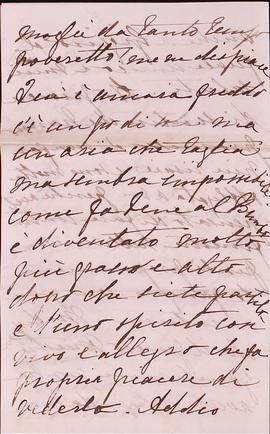 moglie da tanto tempo
poveretto! me ne dispiace
Qui è ancora freddo
c'è un po' di sole ma
un aria che taglia
ma sembra impossibile
come fa bene al Bimbo
è diventato molto
più grasso e alto
dopo che siete partiti
e d'uno spirito così
vivo e allegro che fa
proprio piacere di
vederlo. Addio